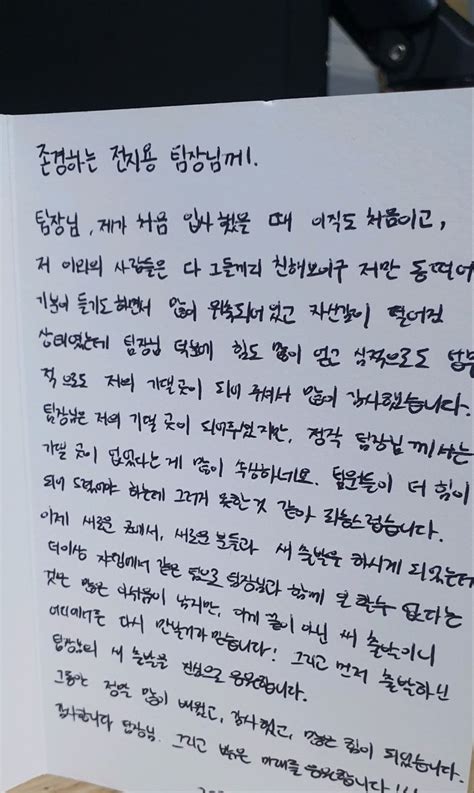 존경하는 전지용 팀장님께.
팀장님, 제가 처음 입사했을 때 이직도 처음이고,
저 이외의 사람들은 다 그들끼리 친해보이구 저만 동떨어
기분이 들기도하면서 많이 위축되어 있고 자신감이 떨어진
상태였는데 팀장님 덕분에 힘도 많이 얻고 심적으로도 업무
적으로도 저의 기댈곳이 되어 주셔서 많이 감사했습니다.
팀장님은 저의 기댈 곳이 되어주었지만, 정작 팀장님께서는
기댈 곳이 없었다는게 많이 속상하네요. 팀원들이 더 힘이
되어 드렸어야 하는데 그러지 못한것 같아 죄송스럽습니다.
이제 새로운 곳에서, 새로운 분들과 새 출발을 하시게 되었는데
더이상 같은 팀으로 팀장님과 함께 일 할수 없다는
것은 많은 아쉬움이 남지만, 이게 끝이 아닌 새 출발이니
어디에서든 다시 만날거라 믿습니다! 그리고 먼저 출발하신
팀장님의 새 출발을 진심으로 응원합니다.
그동안 정말 많이 배웠고, 감사했고, 많은 힘이 되었습니다.
감사합니다 팀장님. 그리고 밝은 미래를 응원합니다!!!